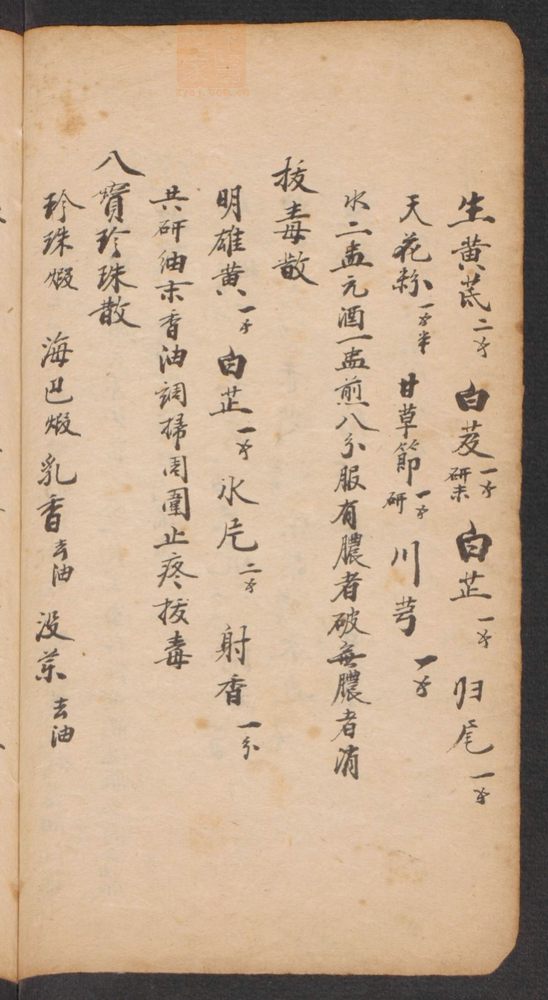 生黄芪二钱 白芨一钱研末 白芷一钱 归尾一钱
天花粉一钱半 甘草節一钱研 川芎一钱
水二盅元酒一盅煎八分服有膿者破無膿者消
拔毒散
明雄黄一钱 白芷一钱 氷片二钱 射香一分
共研细末香油調掃周圍止疼拔毒
八寳珍珠散
珍珠煅 海巴煅 乳香去油 没茶去油